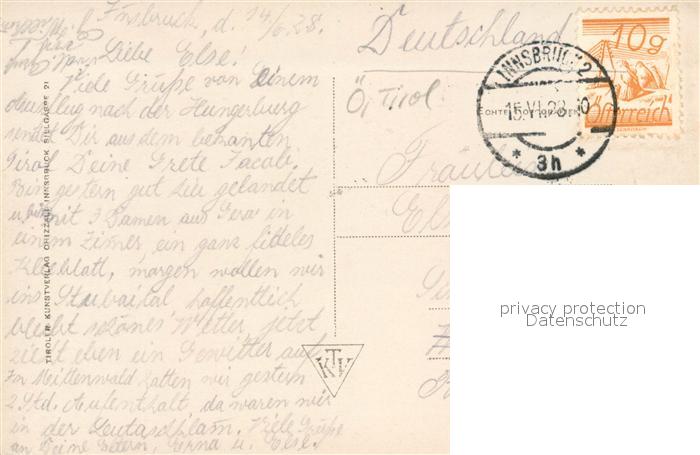 Innsbruck, d. 14/6.28.
Liebe Else!
Viele Grüße von einem
Ausflug nach der Hungerburg
sendet Dir aus dem bekannten
Tirol Deine Grete Jacob.
Bin gestern gut hier gelandet
u. bin mit 3 Damen aus Gera in
einem Zimer ein ganz fideles
Kleeblatt, morgen wollen wir
ins Stubaital hoffentlich
bleibt schönes Wetter, jetzt
zieht eben ein Gewitter auf
In Mittenwald hatten wir gestern
2 Std. Aufenthalt da waren wir
in der Leutaschklam. Viele Grüße
an Deine Eltern, Erna u. Else.
Deutschland
Ö, Tirol
Fräulein
INNSBRUCK 2
15.VI.28
* 3h *
10g
Österreich
TIROLER KUNSTVERLAG CHIZZALI INNSBRUCK SILLGASSE 21
TKV
privacy protection
Datenschutz